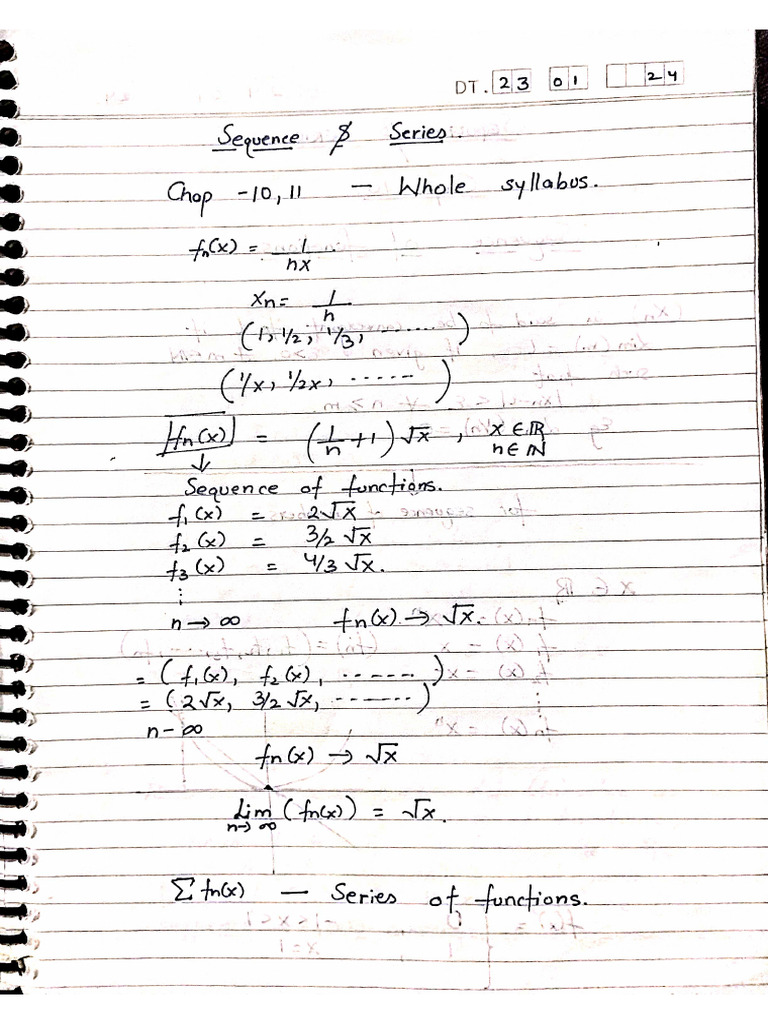 DT. 23 01 24
Sequence & Series.
Chap -10, 11 — Whole syllabus.
fn(x) = 1/nx
xn = 1/n
(1, 1/2, 1/3, ........)
(1/x, 1/2x, ......)
fn(x) = (1/n + 1) √x , x ∈ ℝ n ∈ ℕ
↓
Sequence of functions.
f1(x) = 2√x
f2(x) = 3/2 √x
f3(x) = 4/3 √x.
⋮
n → ∞ fn(x) → √x.
= (f1(x), f2(x), ......)
= (2√x, 3/2 √x, .......)
n - ∞
fn(x) → √x
Lim n→∞ (fn(x)) = √x.
Σ fn(x) — Series of functions.